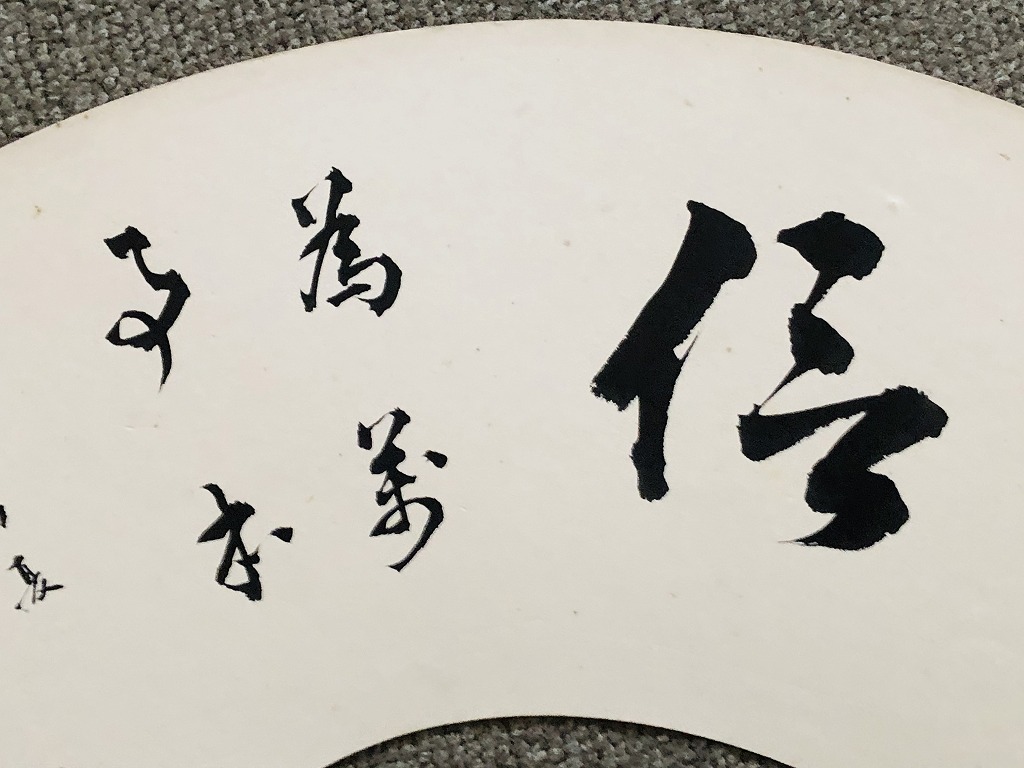 信
為萬
事本